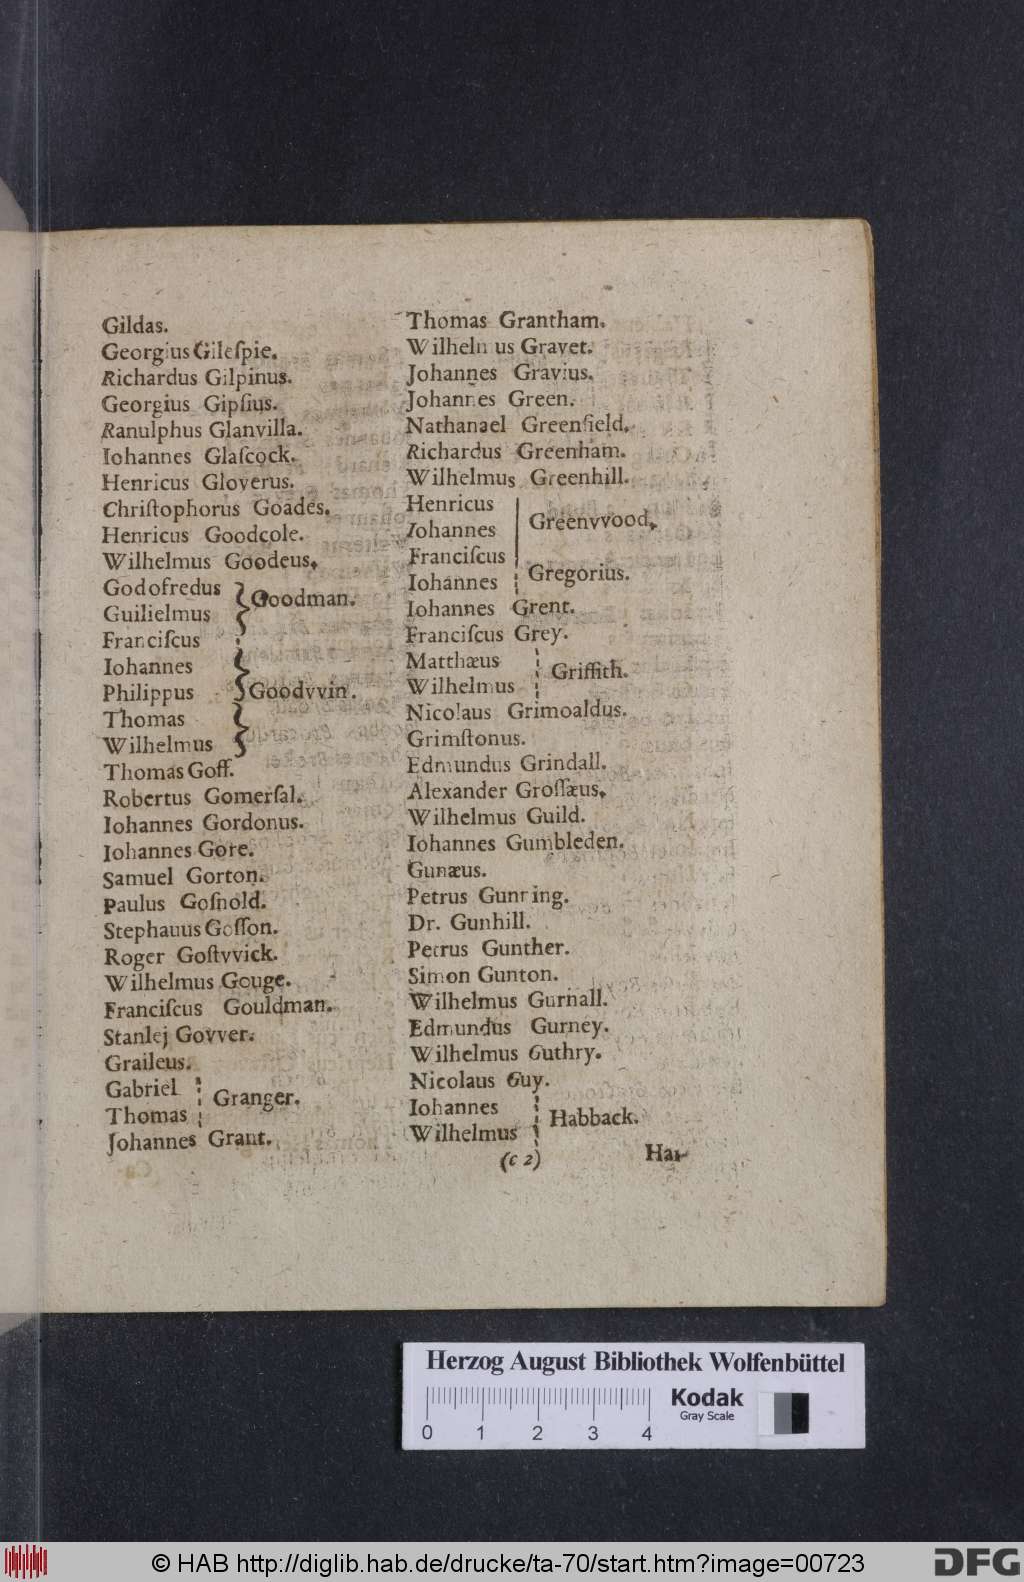 Gildas.
Georgius Gileſpie.
Richardus Gilpinus.
Georgius Gipſius.
Ranulphus Glanvilla.
Iohannes Glaſcock.
Henricus Gloverus.
Chriſtophorus Goades.
Henricus Goodcole.
Wilhelmus Goodeus.
Godofredus
Guilielmus
Goodman.
Franciſcus
Iohannes
Philippus
Thomas
Wilhelmus
Goodvvin.
Thomas Goff.
Robertus Gomerſal.
Iohannes Gordonus.
Iohannes Gore.
Samuel Gorton.
Paulus Goſnold.
Stephauus Goſſon.
Roger Goſtvvick.
Wilhelmus Gouge.
Franciſcus Gouldman.
Stanlej Govver.
Graileus.
Gabriel
Thomas
Granger.
Johannes Grant.
Thomas Grantham.
Wilhelmus Gravet.
Johannes Gravius.
Johannes Green.
Nathanael Greenfield.
Richardus Greenham.
Wilhelmus Greenhill.
Henricus
Iohannes
Franciſcus
Greenvvood.
Iohannes Gregorius.
Iohannes Grent.
Franciſcus Grey.
Matthæus
Wilhelmus
Griffith.
Nicolaus Grimoaldus.
Grimſtonus.
Edmundus Grindall.
Alexander Groſſæus.
Wilhelmus Guild.
Iohannes Gumbleden.
Gunæus.
Petrus Gunning.
Dr. Gunhill.
Petrus Gunther.
Simon Gunton.
Wilhelmus Gurnall.
Edmundus Gurney.
Wilhelmus Guthry.
Nicolaus Guy.
Iohannes
Wilhelmus
Habback.
(c 2)
Har-
Herzog August Bibliothek Wolfenbüttel
Kodak
Gray Scale
0 1 2 3 4
© HAB http://diglib.hab.de/drucke/ta-70/start.htm?image=00723
DFG